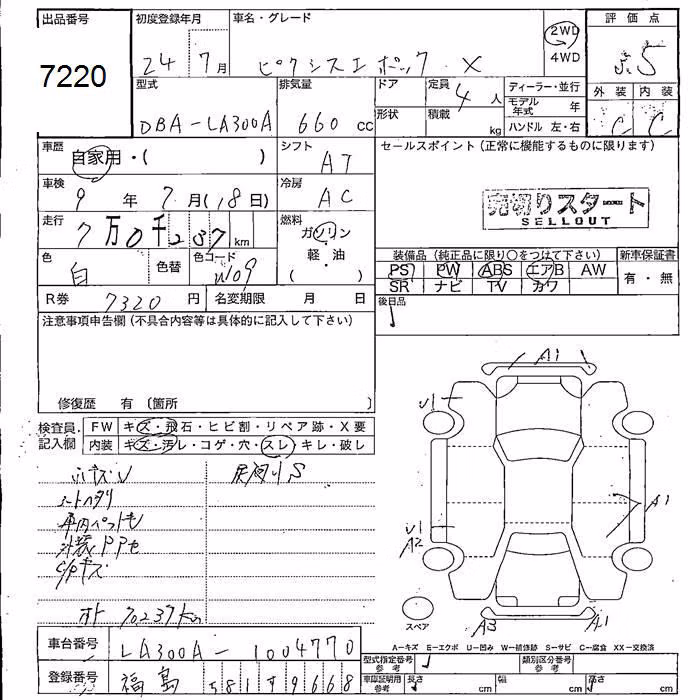 出品番号
7220
初度登録年月
24 7月
車名・グレード
ピクシスエポック X
2WD
4WD
評価点
3.5
外装 内装
C C
型式
DBA-LA300A
排気量
660 cc
ドア
形状
定員 4 人
積載 kg
ディーラー・並行
モデル年式 年
ハンドル 左・右
車歴
自家用・( )
シフト
AT
セールスポイント(正常に機能するものに限ります)
売切りスタート
SELLOUT
車検
9年 7月(18日)
冷房
AC
走行
7万0千237 km
燃料
ガソリン
軽・油
( )
色
白
色替
色コード
W09
装備品(純正品に限り○をつけて下さい)
新車保証書
PS PW ABS エアB AW
SR ナビ TV カワ
有・無
R券 7320円
名変期限 月 日
後日品
注意事項申告欄(不具合内容等は具体的に記入して下さい)
修復歴 有 〔箇所 〕
検査員記入欄
FW キズ・飛石・ヒビ割・リペア跡・X要
内装 キズ・汚レ・コゲ・穴・スレ・キレ・破レ
シートヘタリ
車内ペット毛
C/Pキズ
70237km
A1
A1
A2
A3 A1
スペア
A-キズ E-エクボ U-凹み W-補修跡 S-サビ C-腐食 XX-交換済
車台番号 LA300A-1004770
登録番号 福島 581 9668
型式指定番号 参考
類別区分番号 参考
車庫証明用 参考
長さ cm
幅 cm
高さ cm